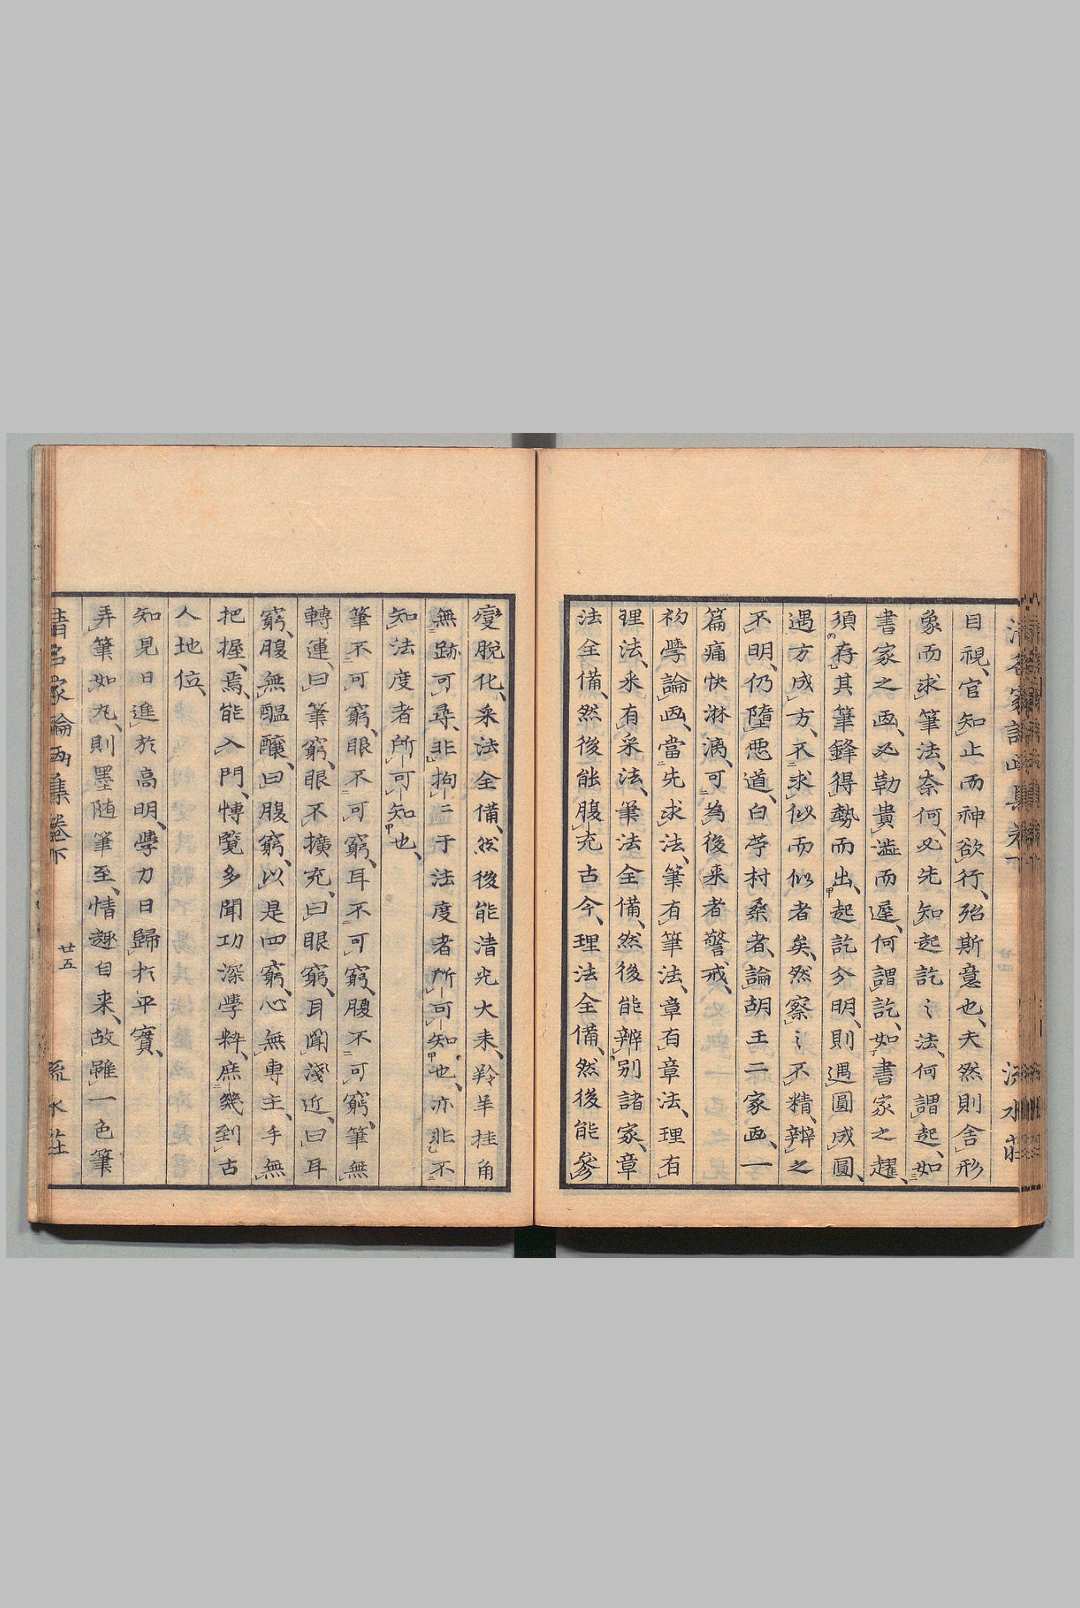 目視、官知止而神欲行、殆斯意也、夫然則舍形
象而求筆法、奈何、必先知起訖之法、何謂起、如
書家之画、必勒貴澁而遅、何謂訖、如書家之趯、
須存其筆鋒得勢而出、起訖分明、則遇圓成圓、
遇方成方、不求似而似者矣、然察之不精、辨之
不明、仍墮悪道、白苧村桑者、論胡王二家画、一
篇痛快淋漓、可為後来者警戒、
初學論画、當先求法、筆有筆法、章有章法、理有
理法、釆有采法、筆法全備、然後能辨別諸家、章
法全備、然後能腹充古今、理法全備、然後能參
變脱化、采法全備、然後能清光大耒、羚羊挂角
無跡可尋、非拘二于法度者所可知也、亦非不
知法度者所可知也、
筆不可窮、眼不可窮、耳不可窮、腹不可窮、筆無
轉運、曰筆窮、眼不擴充、曰眼窮、耳聞淺近、曰耳
窮、腹無醞釀、曰腹窮、以是四窮、心無専主、手無
把握、焉能入門、博覧多聞功深學粋、庶幾到古
人地位、
知見日進於高明、學力日歸於平實、
弄筆如丸、則墨随筆至、情趣自来、故雖一色筆
清名家論画集卷下
廿五
流水荘